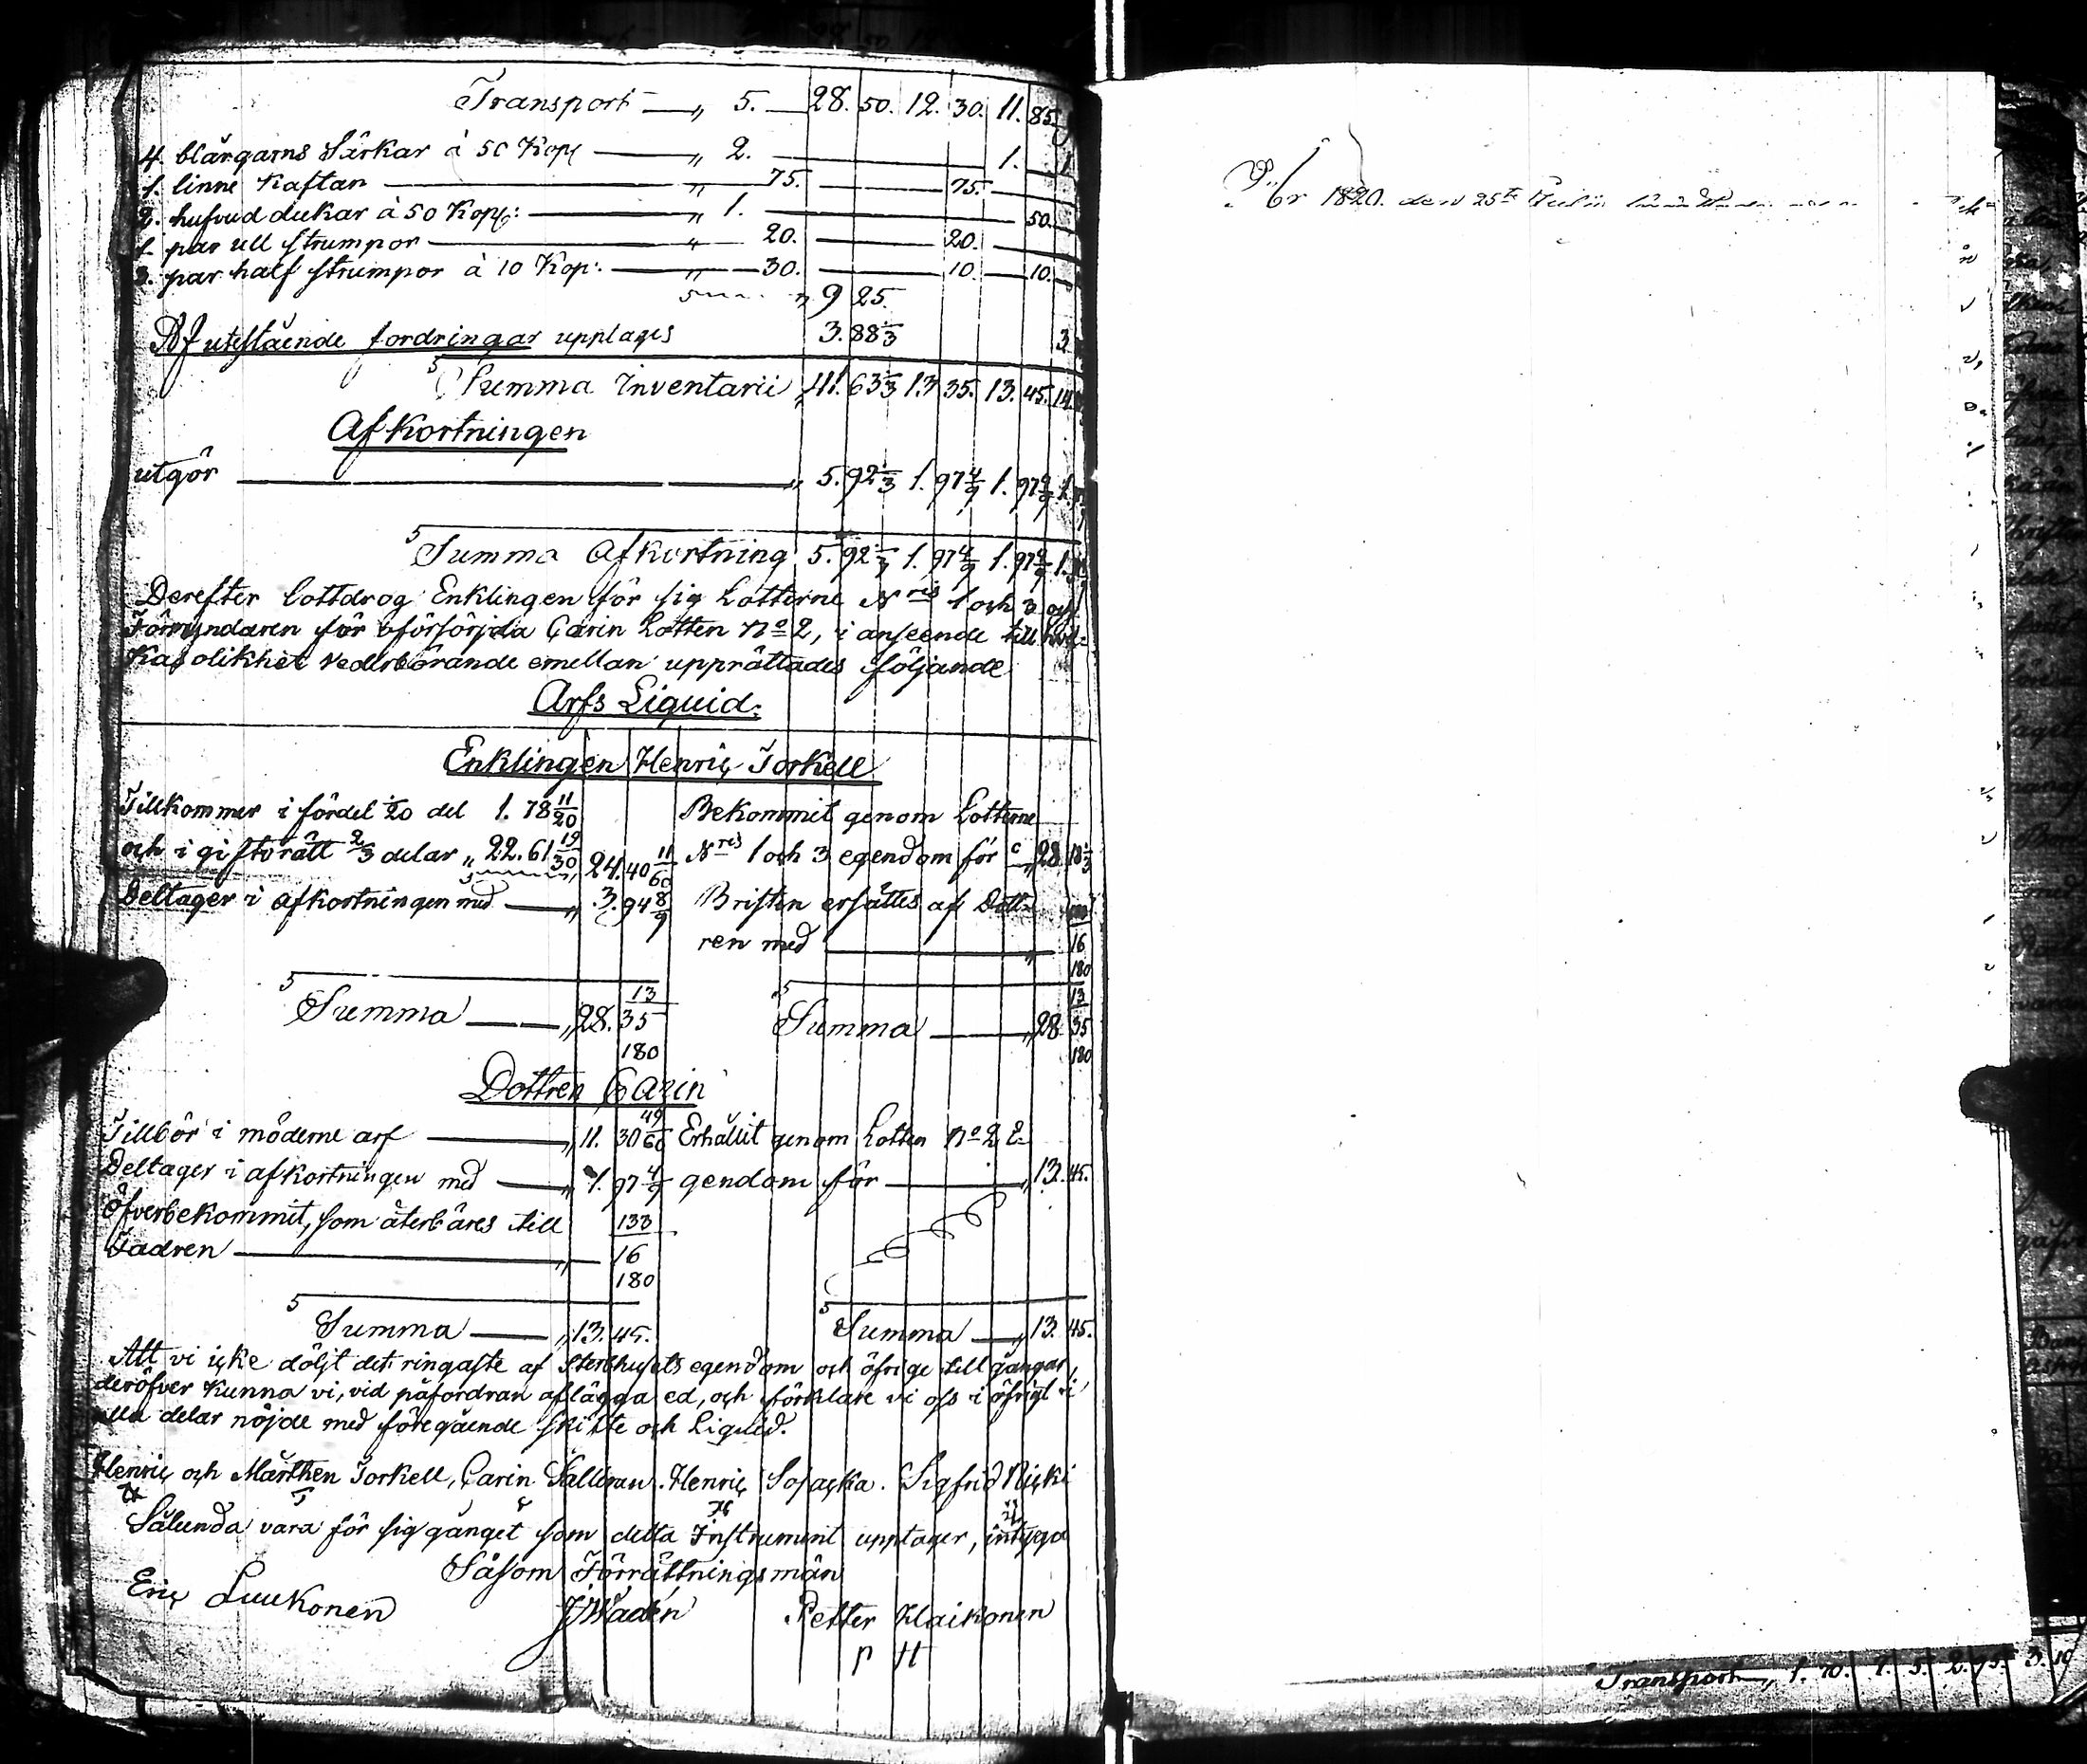 Transport — „ 5. — 28. 50. 12. 30. 11. 85.
4. blårgarns Särkar à 50 Kop — „ 2. — 1. 1
1. linne Kaftan — „ 75. — 75. —
2. hufvud dukar à 50 Kop: — „ 1. — 50.
1. par ull strumpor — „ 20. — 20. —
3. par half strumpor à 10 Kop: — „ 30. — 10. — 10.
„ 9 25.
Af utestående fordringar upptages 3. 88 1/3 3
Summa Inventarii „ 41. 63 1/3 13 35. 13. 45. 14.
Afkortningen
utgör — „ 5. 92 1/3 1. 97 4/9 1. 97 4/9 1.
Summa Afkortning 5. 92 1/3 1. 97 4/9 1. 97 4/9 1.
Derefter lottdrog Enklingen för sig Lotterne Nris 1 och 3 och
Förmyndaren för oförsörjda Carin Lotten No 2, i anseende till hvil-
kas olikhet vederbörande emellan upprättades följande
Arfs Liquid.
Enklingen Henric Torkell
Tillkommer i fördel 1/20 del 1. 78 11/20 Bekommit genom Lotterne
och i giftorätt 2/3 delar „ 22. 61 19/30 24. 40 11/60 Nris 1 och 3 egendom för „ 28
Deltager i afkortningen med — „ 3. 94 8/9 Bristen ersättes af Dott-
ren med — „ 16
180
13 13
Summa — „ 28. 35 Summa — „ 28 35
180 180
Dottren Carin
Tillhör i möderne arf — „ 11. 30 49/60 Erhållit genom Lotten No 2 E-
Deltager i afkortningen med — „ 1. 97 4/9 gendom för — „ 13. 45.
Öfverbekommit, som återbäres till 133
Fadren — „ 16
180
Summa — „ 13. 45. Summa — „ 13. 45.
Att vi icke döljt det ringaste af Sterbhusets egendom och öfrige tillgångar,
deröfver kunna vi, vid påfordran aflägga ed, och förklare vi oss i öfrigt i
alla delar nöjde med föregående skifte och Liquid.
Henric och Mårthen Torkell, Carin Henric Sigfrid
Sålunda vara för sig gånget som detta Instrument upptager, intyga
Såsom Förrättningsmän
Eric Luukonen J Wadén Petter Haikonen
P H
År 1820. den 25te
Transport „ 1. 70. 7. 5. 2. 95. 3. 10